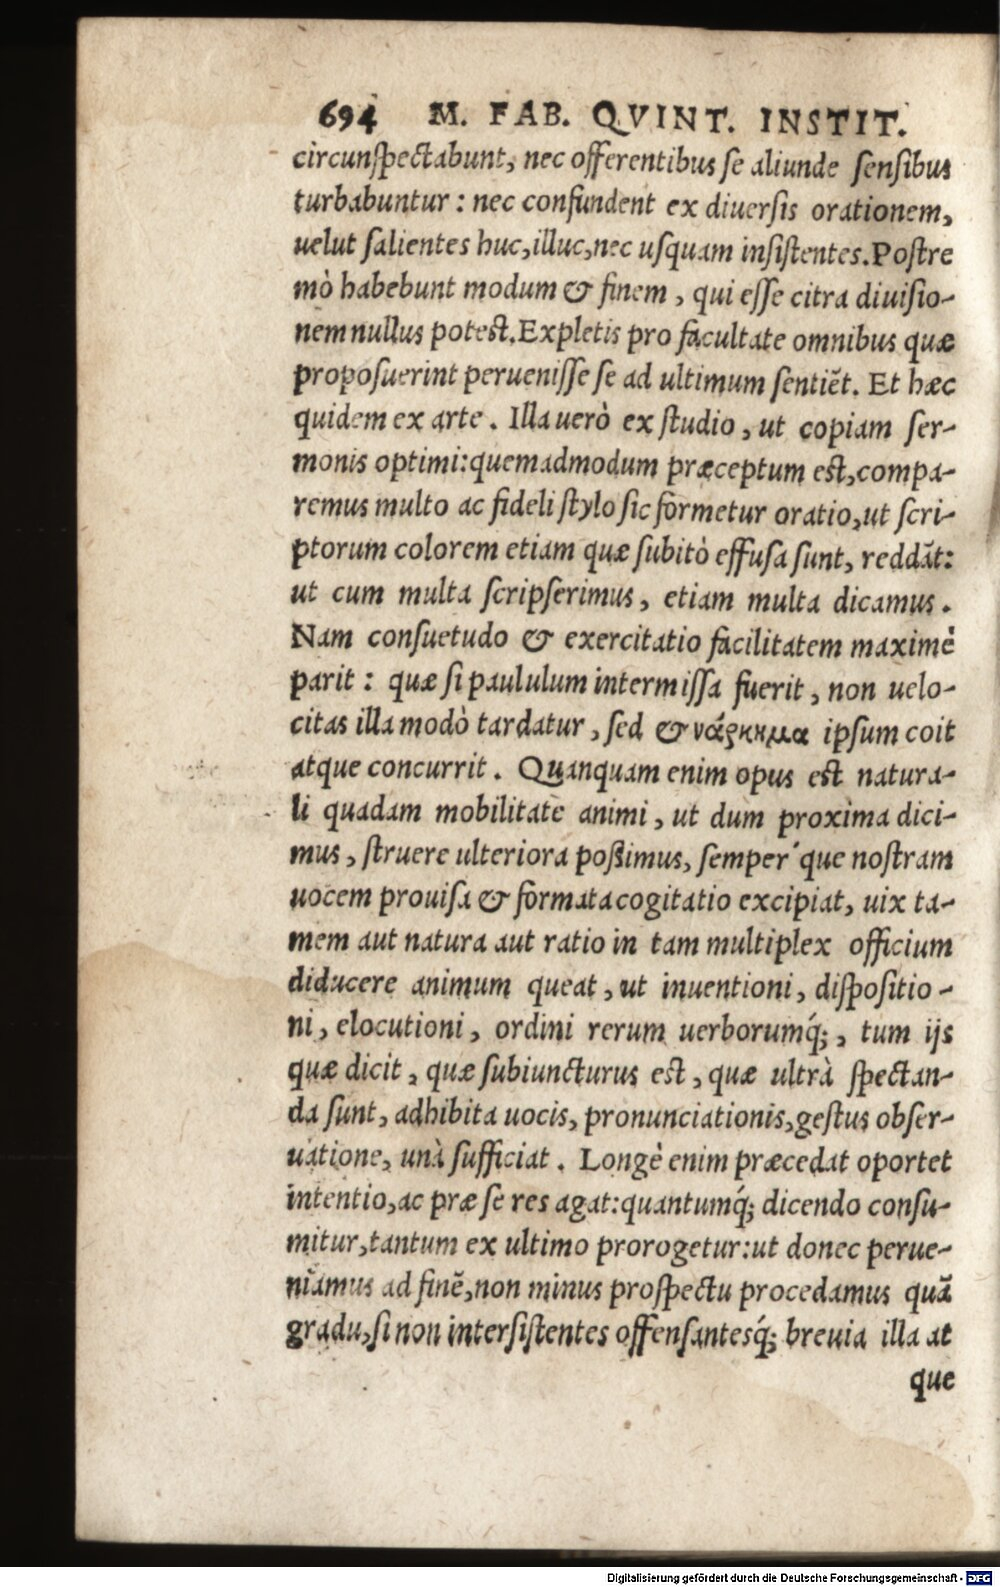 694 M. FAB. QVINT. INSTIT.
circunſpectabunt, nec offerentibus ſe aliunde ſenſibus
turbabuntur : nec confundent ex diuerſis orationem,
uelut ſalientes huc, illuc, nec uſquam inſiſtentes. Poſtre
mò habebunt modum & finem , qui eſſe citra diuiſio-
nem nullus poteſt. Expletis pro facultate omnibus quæ
propoſuerint perueniſſe ſe ad ultimum ſentiēt. Et hæc
quidem ex arte . Illa uerò ex ſtudio , ut copiam ſer-
monis optimi: quemadmodum præceptum eſt, compa-
remus multo ac fideli ſtylo ſic formetur oratio, ut ſcri-
ptorum colorem etiam quæ ſubitò effuſa ſunt, reddāt:
ut cum multa ſcripſerimus , etiam multa dicamus .
Nam conſuetudo & exercitatio facilitatem maximè
parit : quæ ſi paululum intermiſſa fuerit , non uelo-
citas illa modò tardatur , ſed & νάρκημα ipſum coit
atque concurrit . Quanquam enim opus eſt natura-
li quadam mobilitate animi , ut dum proxima dici-
mus , ſtruere ulteriora poßimus, ſemper´que noſtram
uocem prouiſa & formata cogitatio excipiat, uix ta-
mem aut natura aut ratio in tam multiplex officium
diducere animum queat , ut inuentioni , diſpoſitio -
ni , elocutioni , ordini rerum uerborumq́; , tum ijs
quæ dicit , quæ ſubiuncturus eſt , quæ ultrà ſpectan-
da ſunt, adhibita uocis, pronunciationis, geſtus obſer-
uatione, unà ſufficiat . Longè enim præcedat oportet
intentio, ac præ ſe res agat: quantumq́; dicendo conſu-
mitur, tantum ex ultimo prorogetur: ut donec perue-
niamus ad finē, non minus proſpectu procedamus quā
gradu, ſi non interſiſtentes offenſantesq́; breuia illa at
que
Digitalisierung gefördert durch die Deutsche Forschungsgemeinschaft - DFG